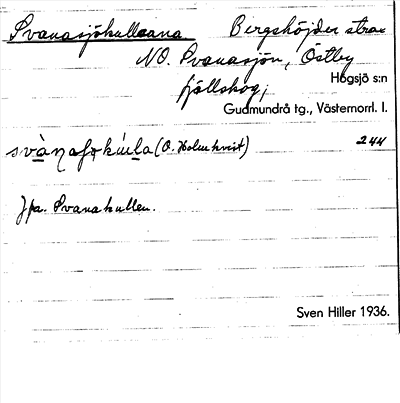 Svanasjökullarna Bergshöjder strax
NO. Svanasjön, Östby
fjällskog; Högsjö s:n
Gudmundrå tg., Västernorrl. l.
(O. Holmkvist) 244
Jfa. Svanakullen.
Sven Hiller 1936.